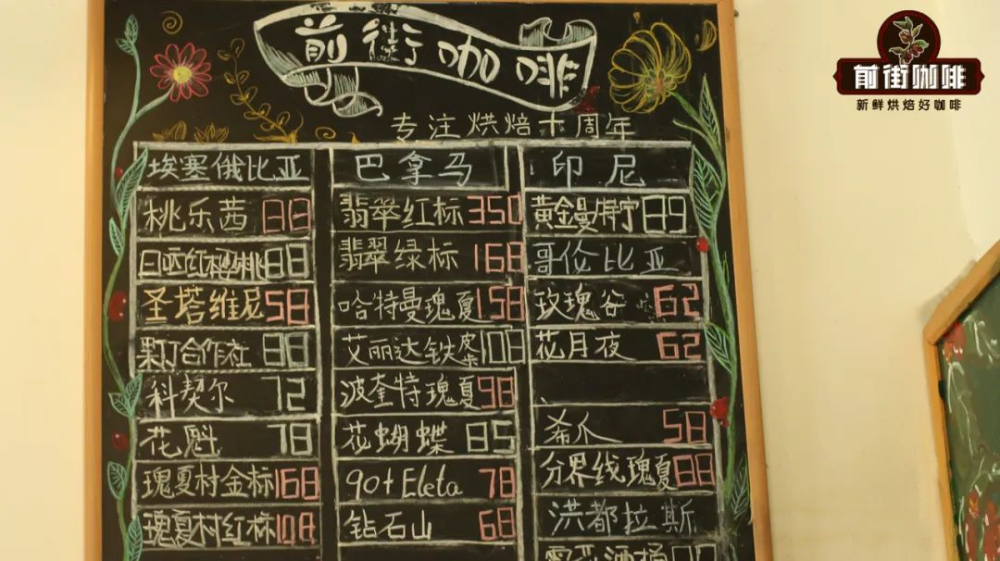 前街咖啡
专注烘焙十周年
埃塞俄比亚
桃乐茜 88
日晒红樱桃 88
圣塔维尼 58
果丁合作社 88
科契尔 72
花魁 78
瑰夏村金标 168
瑰夏村红标 108
巴拿马
翡翠红标 350
翡翠绿标 168
哈特曼瑰夏 158
艾丽达铁皮柴 108
波奎特瑰夏 98
花蝴蝶 85
90+Eleta 78
钻石山 68
印尼
黄金曼特宁 89
哥伦比亚
玫瑰谷 62
花月夜 62
希爪 58
分界线瑰夏 88
洪都拉斯
前街咖啡
新鲜烘焙好咖啡